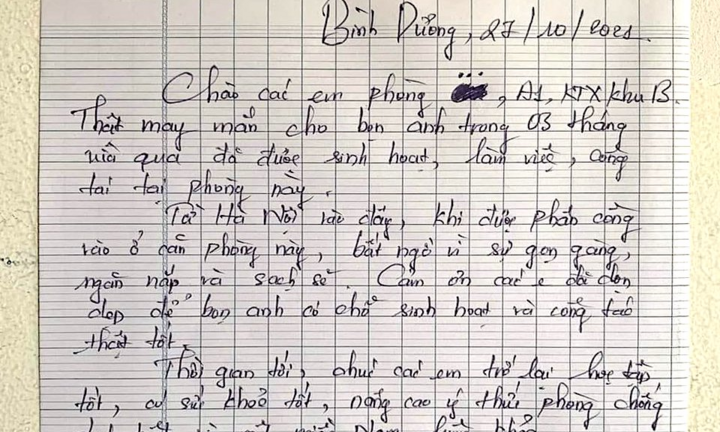 Bình Dương, 27/10/2021.
Chào các em phòng ..., A1, KTX khu B.
Thật may mắn cho bọn anh trong 03 tháng
vừa qua đã được sinh hoạt, làm việc, công
tác tại phòng này.
Từ Hà Nội vào đây, khi được phân công
vào ở căn phòng này, bất ngờ vì sự gọn gàng,
ngăn nắp và sạch sẽ. Cảm ơn các e đã dọn
dẹp để bọn anh có chỗ sinh hoạt và công tác
thật tốt.
Thời gian tới, chúc các em trở lại học tập
tốt, có sức khoẻ tốt, nâng cao ý thức phòng chống